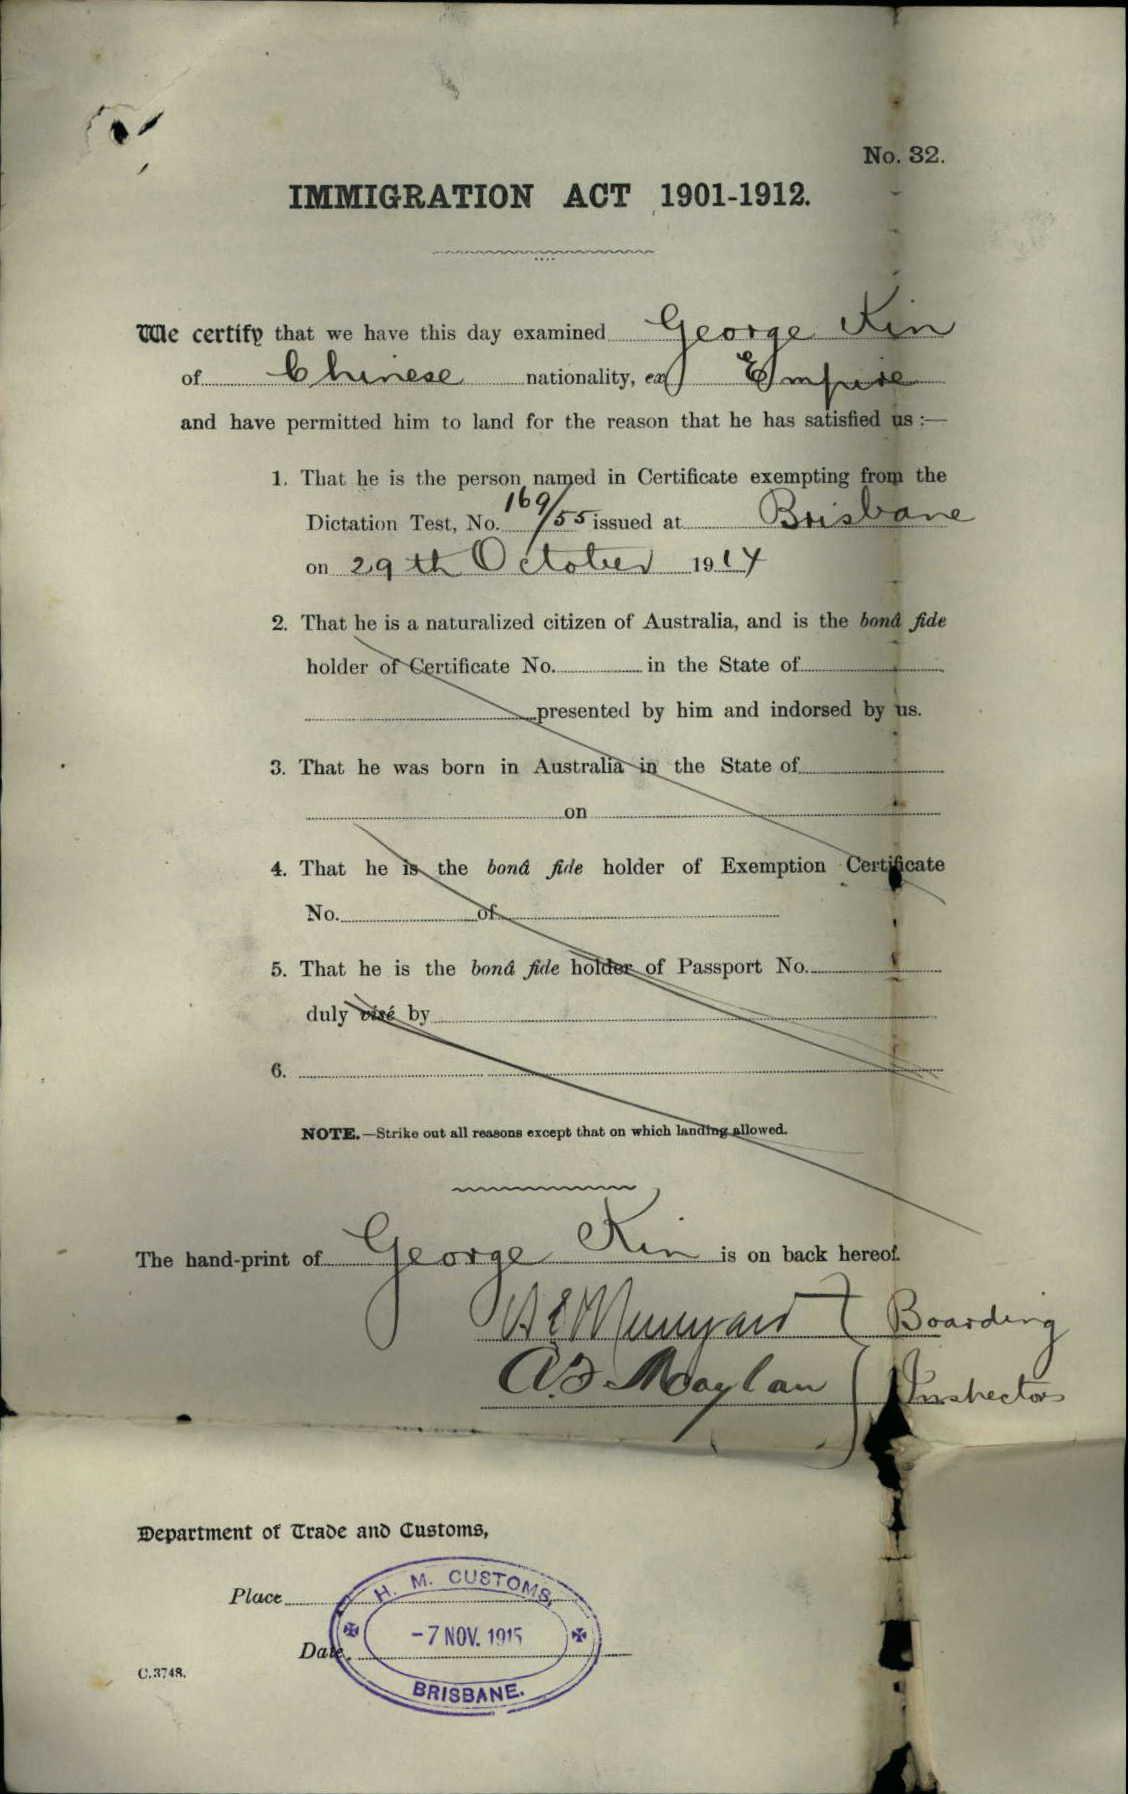 No. 32.
IMMIGRATION ACT 1901-1912.
We certify that we have this day examined George Kin
of Chinese nationality, ex Empire
and have permitted him to land for the reason that he has satisfied us :—
1. That he is the person named in Certificate exempting from the
Dictation Test, No. 169/55 issued at Brisbane
on 29th October 1914
2. That he is a naturalized citizen of Australia, and is the bonâ fide
holder of Certificate No. in the State of
presented by him and indorsed by us.
3. That he was born in Australia in the State of
on
4. That he is the bonâ fide holder of Exemption Certificate
No. of
5. That he is the bonâ fide holder of Passport No.
duly visé by
6.
NOTE.—Strike out all reasons except that on which landing allowed.
The hand-print of George Kin is on back hereof.
Boarding
Inspectors
Department of Trade and Customs,
Place
H. M. CUSTOMS,
-7 NOV. 1915
Date
BRISBANE.
C.3748.